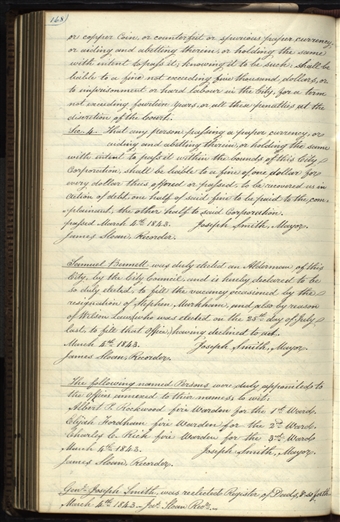 168)
or copper Coin, or counterfeit or spurious paper currency,
or aiding and abetting therein, or holding the same
with intent to pass it, knowing it to be such, shall be
liable to a fine not exceeding five thousand dollars, or
to imprisonment or hard labour in the City, for a term
not exceeding fourteen years, or all these penalties at the
discretion of the Court.
Sec. 4. That any person passing a paper currency, or
aiding and abetting therein, or holding the same
with intent to pass it within the bounds of this City
Corporation, shall be liable to a fine of one dollar for
every dollar thus offered or passed, to be recovered as in
action of debt, one half of said fine to be paid to the com-
plainant, the other half to said Corporation.
passed March 4th 1843. Joseph Smith, Mayor.
James Sloan, Recorder.
Samuel Bennett was duly elected an Alderman of this
City, by the City Council, and is hereby declared to be
so duly elected, to fill the vacancy occasioned by the
resignation of Stephen Markham, and also by reason
of Wilson Law (who was elected on the 25th day of July
last, to fill that Office) having declined to act.
March 4th 1843. Joseph Smith, Mayor
James Sloan, Recorder.
The following named Persons were duly appointed to
the offices annexed to their names to wit:
Albert P. Rockwood fire Warden for the 1st Ward.
Elijah Fordham fire Warden for the 2nd Ward.
Charles C. Rich fire Warden for the 3rd Ward.
March 4th 1843. Joseph Smith, Mayor.
James Sloan Recorder.
Genl. Joseph Smith, was reelected Register of Deeds, &
March 4th 1843. Jas. Sloan Recr.